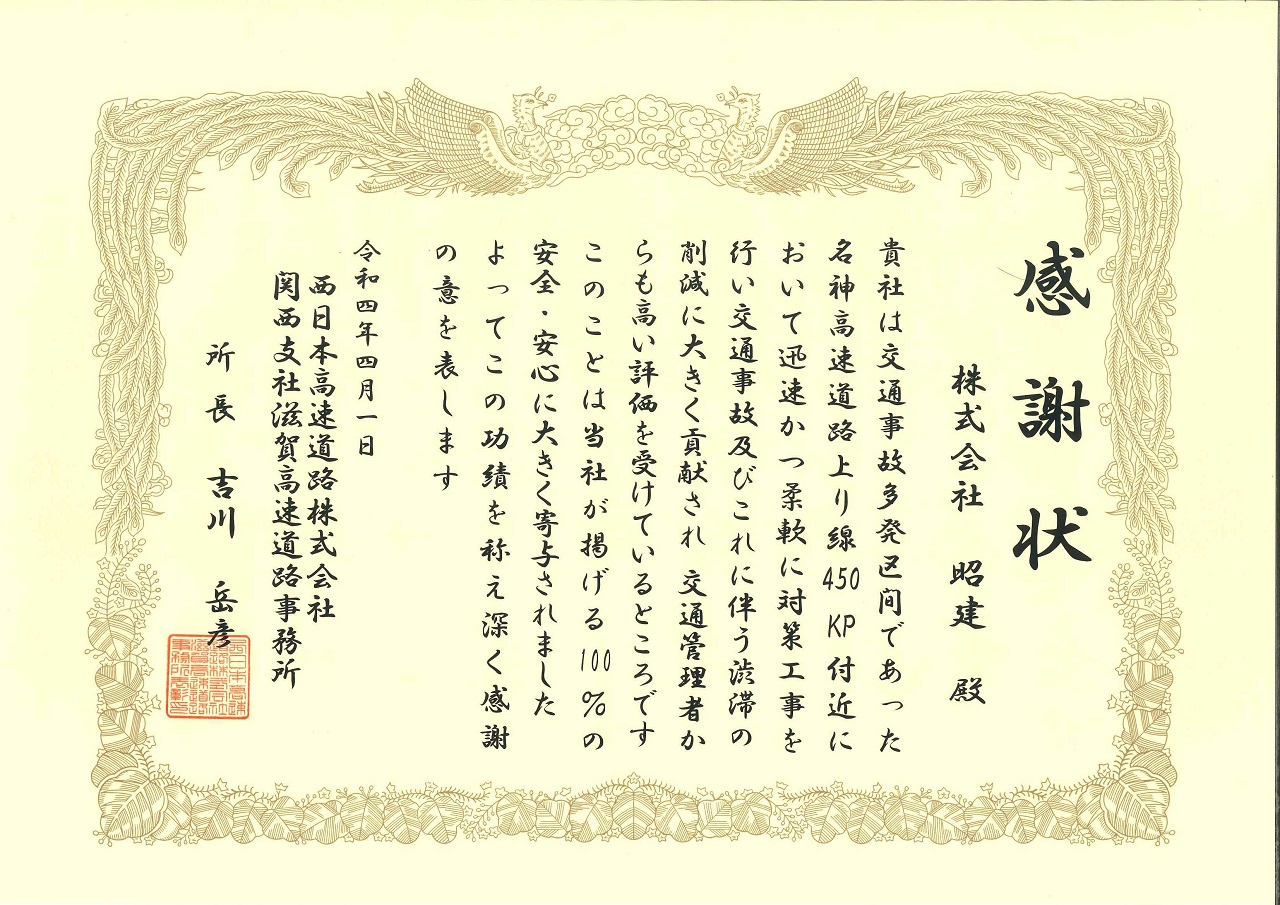 感謝状
株式会社 昭建 殿
貴社は交通事故多発区間であった
名神高速道路上り線450KP付近に
おいて迅速かつ柔軟に対策工事を
行い交通事故及びこれに伴う渋滞の
削減に大きく貢献され 交通管理者か
らも高い評価を受けているところです
このことは当社が掲げる100%の
安全・安心に大きく寄与されました
よってこの功績を称え深く感謝
の意を表します
令和四年四月一日
西日本高速道路株式会社
関西支社滋賀高速道路事務所
所長 吉川 岳彦